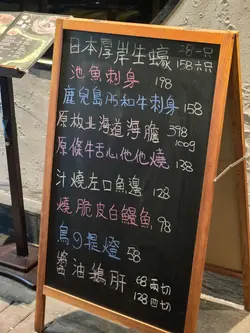 日本厚岸生蠔 28一只
158六只
池魚刺身 198
鹿兒島A5和牛刺身 158
原板北海道海膽 398
100g
原條牛舌心他他燒 138
汁燒左口魚邊 128
燒脆皮白鱔魚 98
鳥の提燈 58
醬油鵝肝 68兩切
128四切